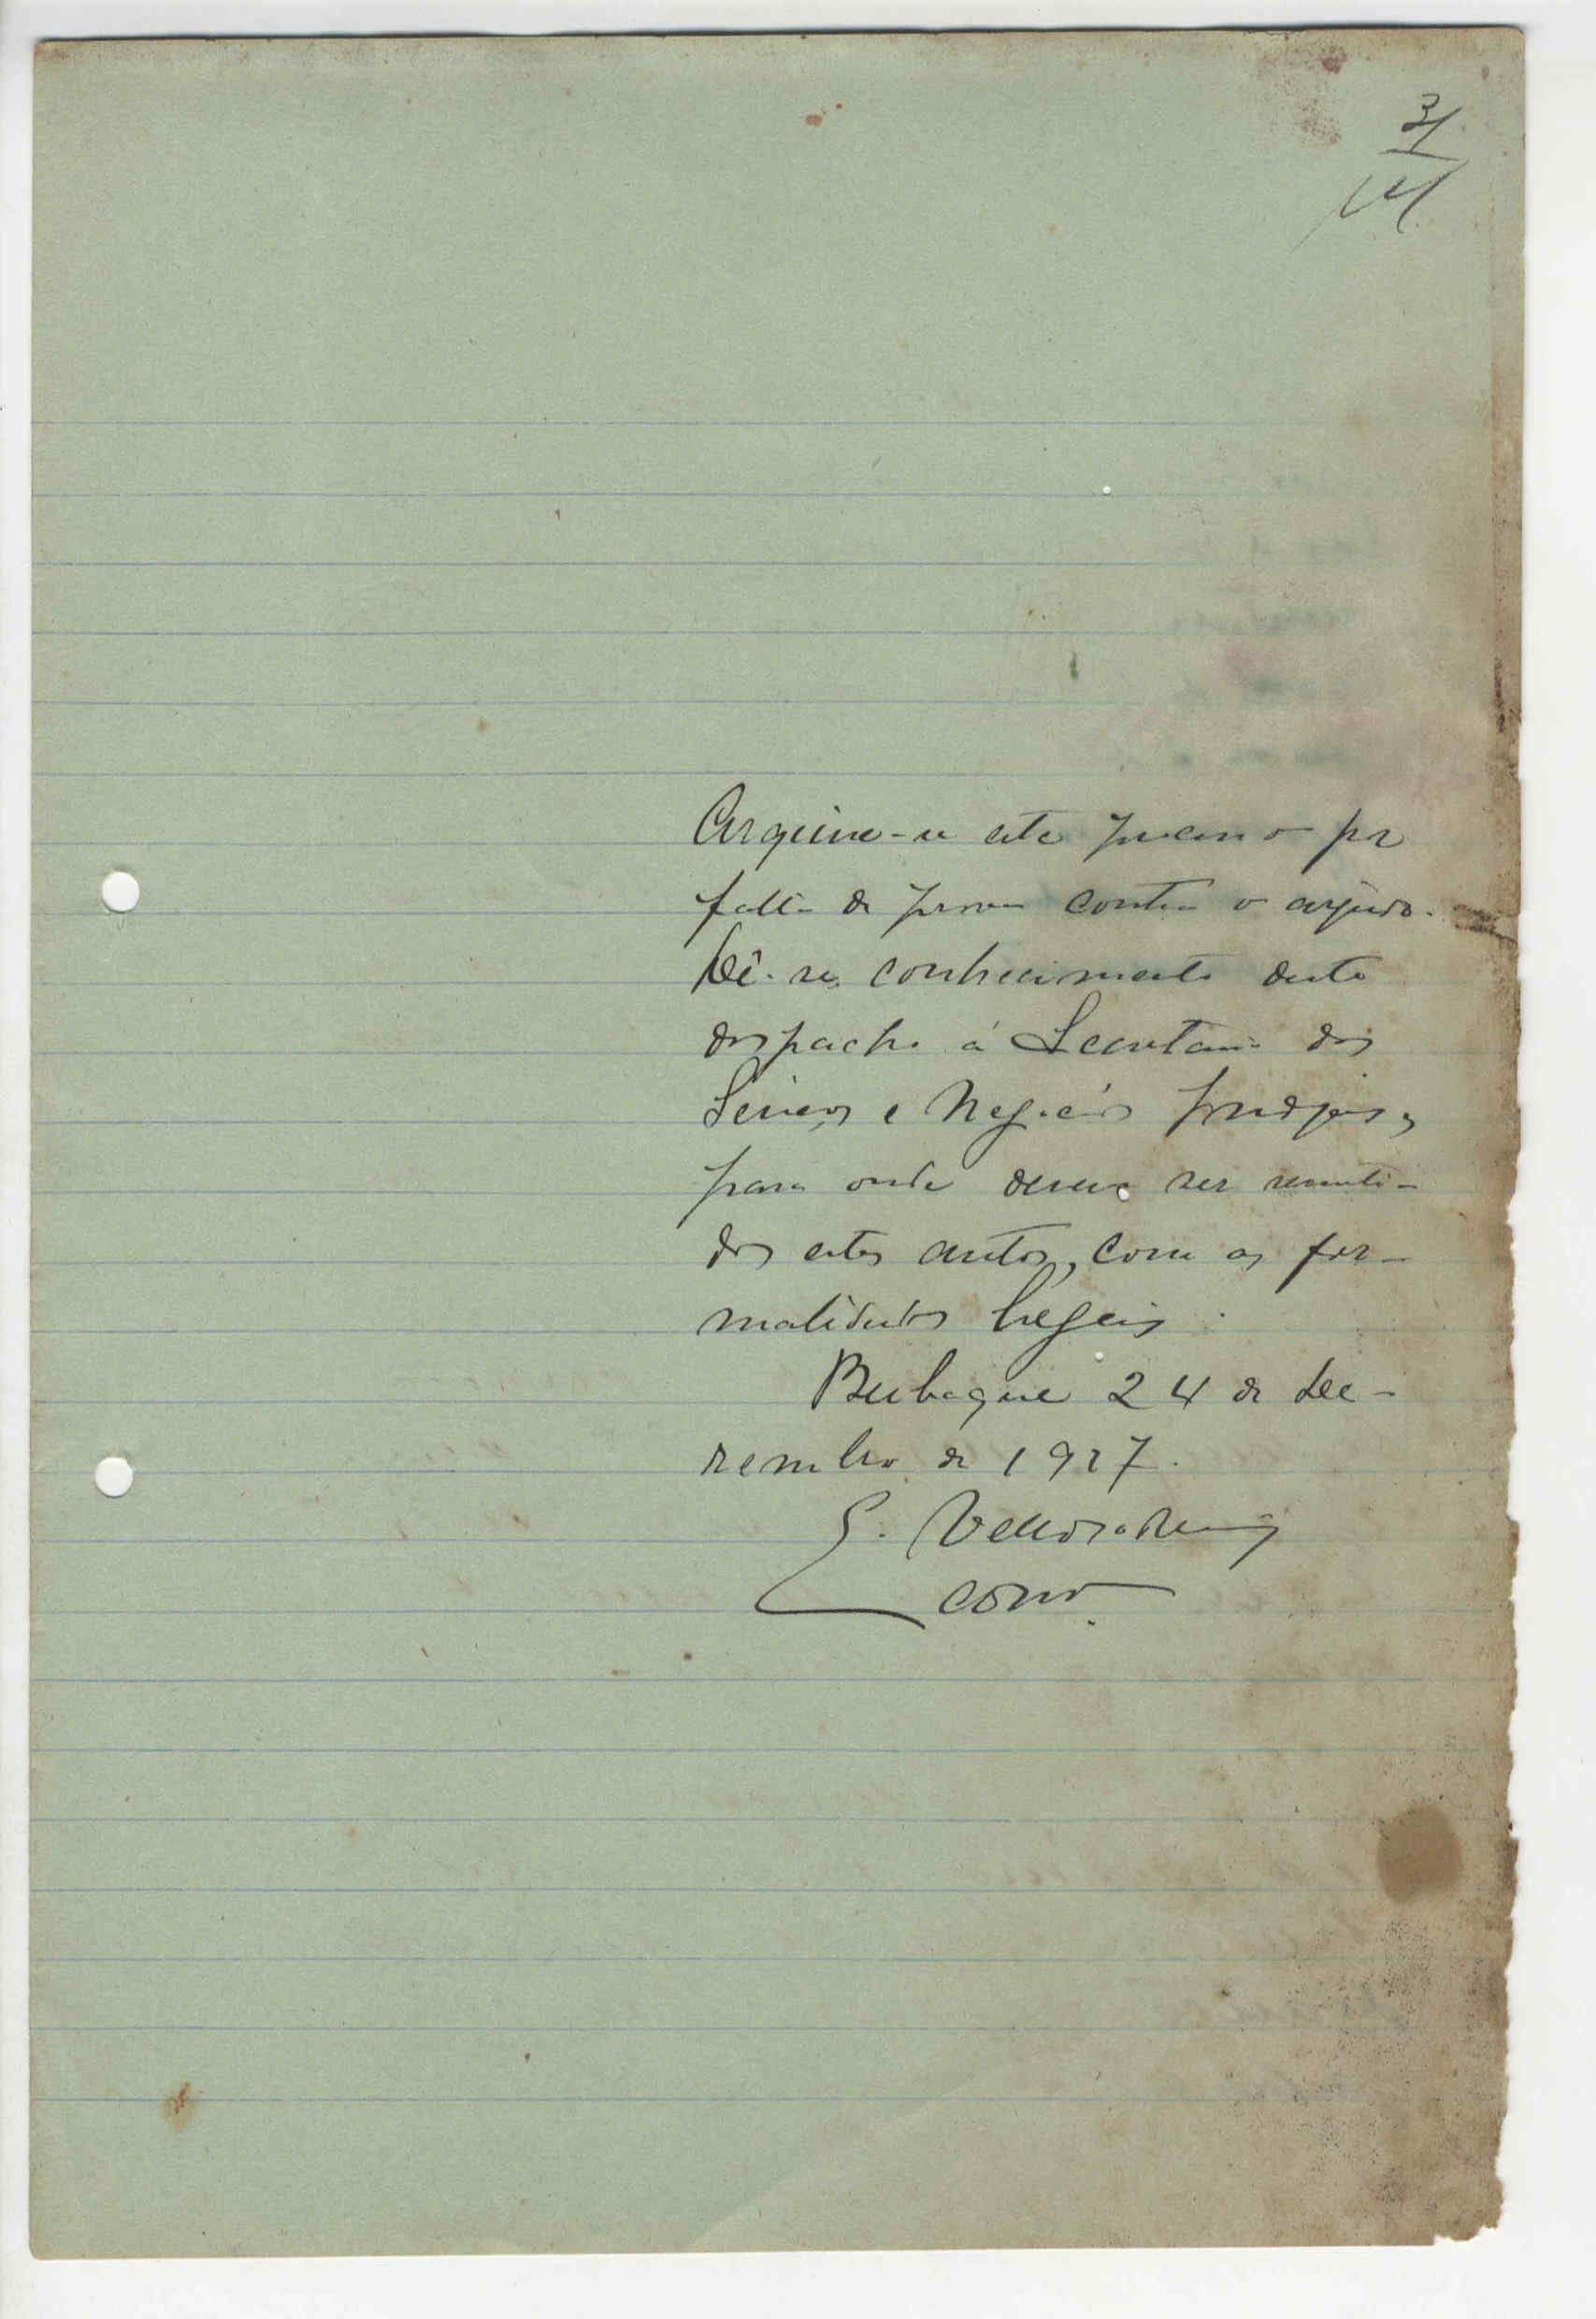 31
Arquive-se este processo por
falta de provas contra o arguido.
Dê-se conhecimento deste
despacho á Secretaria dos
Serviços e Negocios Indigenas,
para onde devem ser remeti-
dos estes autos, com as for-
malidades legais.
Bubaque 24 de De-
zembro de 1927.